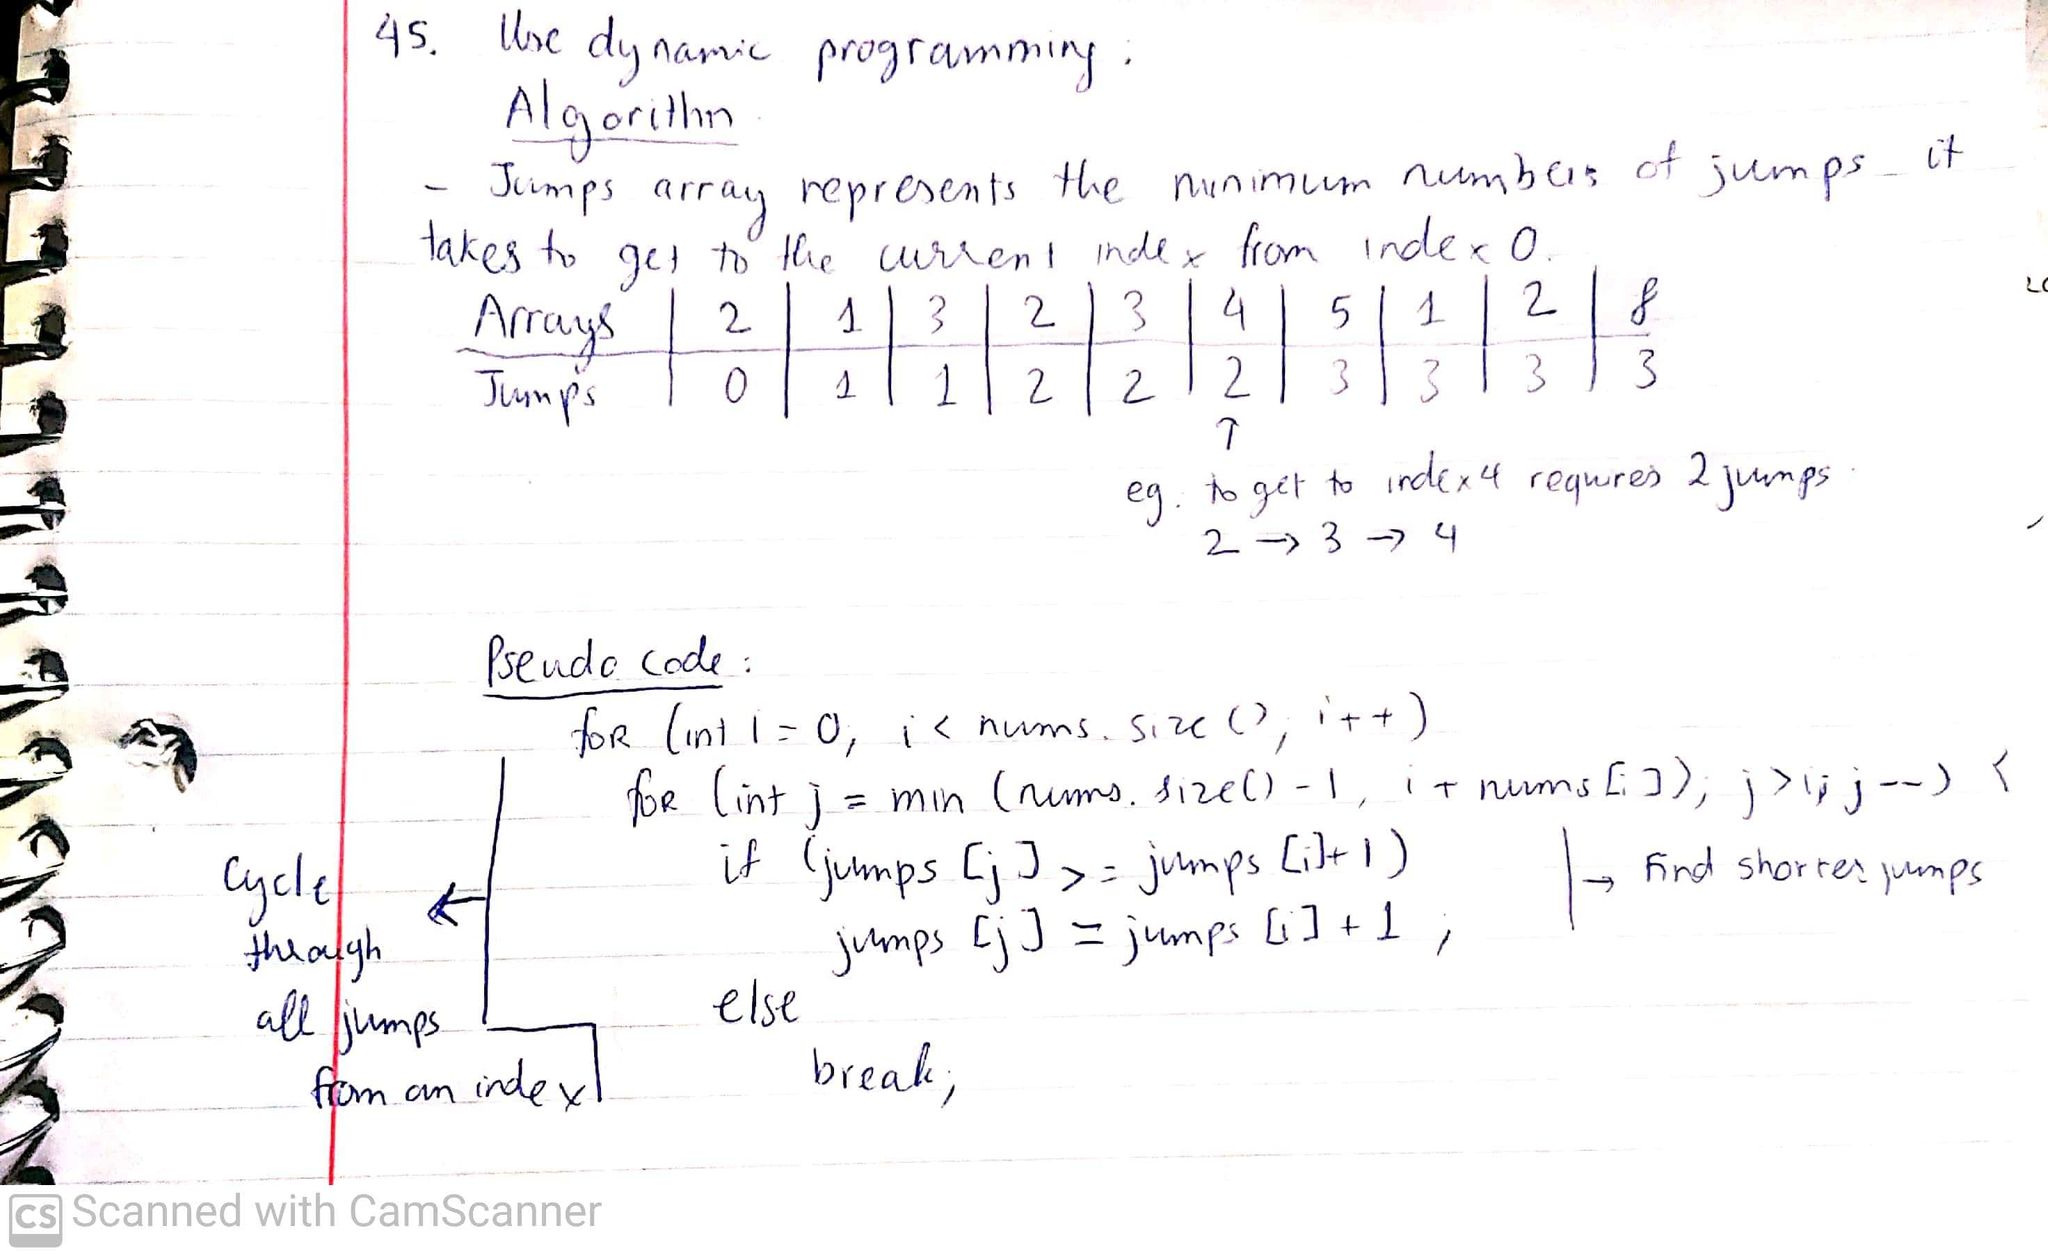 45. Use dynamic programming:
Algorithm
- Jumps array represents the minimum numbers of jumps it
takes to get to the current index from index 0.
Arrays | 2 | 1 | 3 | 2 | 3 | 4 | 5 | 1 | 2 | 8
Jumps | 0 | 1 | 1 | 2 | 2 | 2 | 3 | 3 | 3 | 3
↑
eg. to get to index 4 requires 2 jumps
2 → 3 → 4
Pseudo code:
for (int i = 0; i < nums.size(); i++)
for (int j = min (nums.size() - 1, i + nums[i]); j > i; j--) {
if (jumps [j] >= jumps [i]+1)
→ Find shorter jumps
jumps [j] = jumps [i] + 1;
else
break;
Cycle
through
all jumps
from an index
CS Scanned with CamScanner